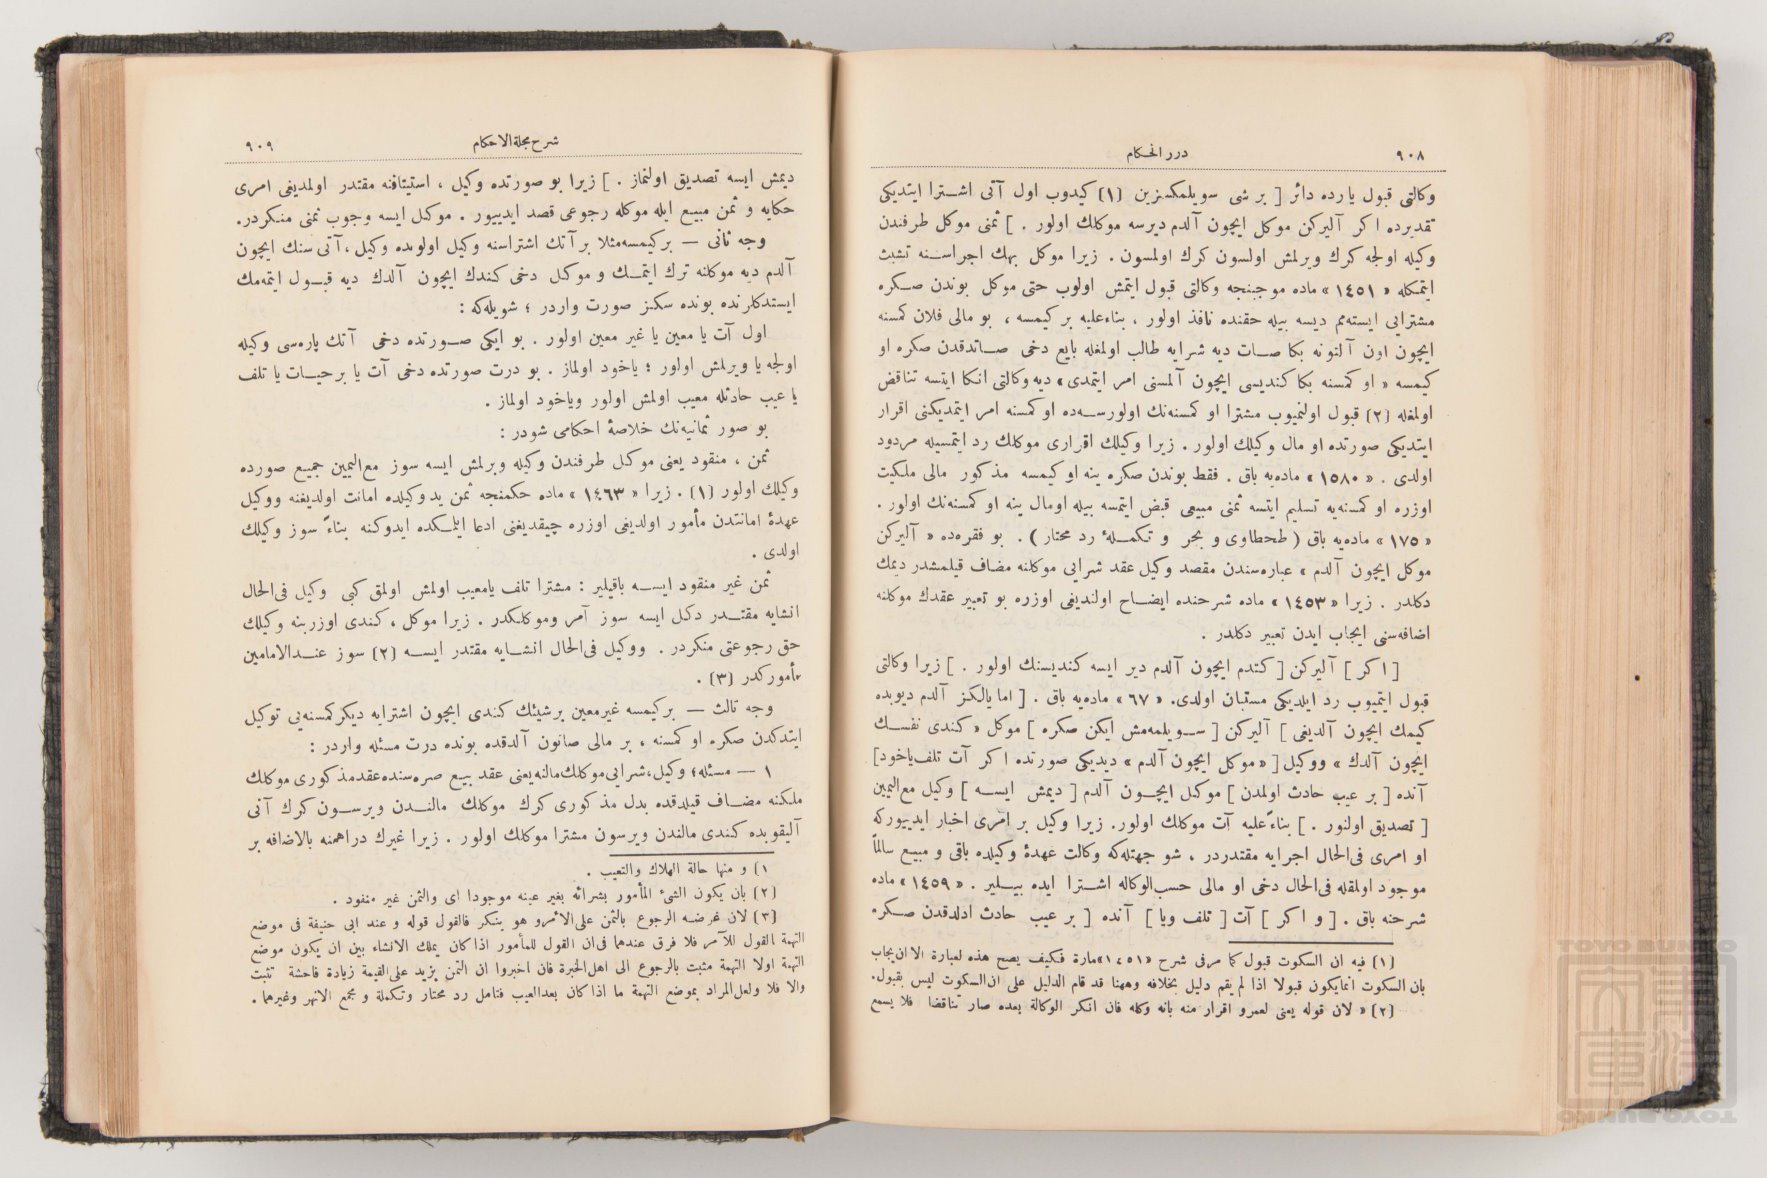 ٩٠٨
درر الحكام
وكالتى قبول يارده دائر [ بر شى سويلمكسزين (١) كيدوب اول آتى اشترا ايتديكى
تقديرده اكر آليركن موكل ايچون آلدم ديرسه موكلك اولور . ] ثمنى موكل طرفندن
وكيله اولجه كرك ويرلمش اولسون كرك اولمسون . زيرا موكل بهك اجراسنه تشبث
ايتمكله « ١٤٥١ » ماده موجبنجه وكالتى قبول ايتمش اولوب حتى موكل بوندن صكره
مشترايى ايسته‌مم ديسه بيله حقنده نافذ اولور . بناءعليه بر كيمسه ، بو مالى فلان كمسنه
ايچون اون آلتونه بكا صات ديه شرايه طالب اولمغله بايع دخى صاتدقدن صكره او
كيمسه « او كمسنه بكا كنديسى ايچون آلمسنى امر ايتمدى » ديه وكالتى انكا ايتسه تناقض
اولمغله (٢) قبول اولنميوب مشترا او كمسنه‌نك اولورسه‌ده او كمسنه امر ايتمديكنى اقرار
ايتديكى صورتده او مال وكيلك اولور . زيرا وكيلك اقرارى موكلك رد ايتمسيله مردود
اولدى . « ١٥٨٠ » ماده‌يه باق . فقط بوندن صكره ينه او كيمسه مذكور مالى ملكيت
اوزره او كمسنه‌يه تسليم ايتسه ثمنى مبيعى قبض ايتمسه بيله اومال ينه او كمسنه‌نك اولور .
« ١٧٥ » ماده‌يه باق ( طحطاوى و بحر و تكملهٔ رد محتار ) . بو فقره‌ده « آليركن
موكل ايچون آلدم » عباره‌سندن مقصد وكيل عقد شرايى موكلنه مضاف قيلمشدر ديمك
دكلدر . زيرا « ١٤٥٣ » ماده شرحنده ايضاح اولنديغى اوزره بو تعبير عقدك موكلنه
اضافه‌سنى ايجاب ايدن تعبير دكلدر .
[ اكر ] آليركن [ كندم ايچون آلدم دير ايسه كنديسنك اولور . ] زيرا وكالتى
قبول ايتميوب رد ايلديكى مستبان اولدى . « ٦٧ » ماده‌يه باق . [ اما يالكز آلدم ديوبده
كيمك ايچون آلديغى ] آليركن [ سويلمه‌مش ايكن صكره ] موكل « كندى نفسك
ايچون آلدك » ووكيل [ « موكل ايچون آلدم » ديديكى صورتده اكر آت تلف ياخود ]
آنده [ بر عيب حادث اولمدن ] موكل ايچون آلدم [ ديمش ايسه ] وكيل مع‌اليمين
[ تصديق اولنور . ] بناءً عليه آت موكلك اولور. زيرا وكيل بر امرى اخبار ايدييوركه
او امرى فى‌الحال اجرايه مقتدردر . شو جهتله‌كه وكالت عهدهٔ وكيلده باقى و مبيع سالماً
موجود اولمقله فى‌الحال دخى او مالى حسب‌الوكاله اشترا ايده بيلير . « ١٤٥٩ » ماده
شرحنه باق . [ و اكر ] آت [ تلف ويا ] آنده [ بر عيب حادث اولدقدن صكره
(١) فيه ان السكوت قبول كما مرفى شرح «١٤٥١» مارة فكيف يصح هذه لعبارة الا ان يجاب
بان السكوت انما يكون قبولا اذا لم يقم دليل بخلافه وههنا قد قام الدليل على ان السكوت ليس بقبول.
(٢) « لان قوله يعنى لعمرو اقرار منه بانه وكله فان انكر الوكالة بعده صار تناقضا فلا يسمع
شرح مجلة الاحكام
٩٠٩
ديمش ايسه تصديق اولنماز . ] زيرا بو صورتده وكيل ، استئنافنه مقتدر اولمديغى امرى
حكايه و ثمن مبيع ايله موكله رجوعى قصد ايدييور . موكل ايسه وجوب ثمنى منكردر.
وجه ثانى — بركيمسه مثلا بر آتك اشتراسنه وكيل اولوبده وكيل ، آتى سنك ايچون
آلدم ديه موكلنه ترك ايتمك و موكل دخى كندك ايچون آلدك ديه قبول ايتمه‌مك
ايستدكلرنده بونده سكز صورت واردر ؛ شويله‌كه :
اول آت يا معين يا غير معين اولور . بو ايكى صورتده دخى آتك پاره‌سى وكيله
اولجه يا ويرلمش اولور ؛ ياخود اولماز . بو درت صورتده دخى آت يا برحيات يا تلف
يا عيب حادثله معيب اولمش اولور وياخود اولماز .
بو صور ثمانيه‌نك خلاصهٔ احكامى شودر :
ثمن ، منقود يعنى موكل طرفندن وكيله ويرلمش ايسه سوز مع‌اليمين جميع صورده
وكيلك اولور (١) . زيرا « ١٤٦٣ » ماده حكمنجه ثمن يد وكيلده امانت اولديغنه ووكيل
عهدهٔ امانتدن مأمور اولديغى اوزره چيقديغنى ادعا ايلمكده ايدوكنه بناءً سوز وكيلك
اولدى .
ثمن غير منقود ايسه باقيلير : مشترا تلف يا معيب اولمش اولمق كبى وكيل فى‌الحال
انشايه مقتدر دكل ايسه سوز آمر وموكلكدر . زيرا موكل ، كندى اوزرينه وكيلك
حق رجوعنى منكردر . ووكيل فى‌الحال انشايه مقتدر ايسه (٢) سوز عندالامامين
مأموركدر (٣) .
وجه ثالث — بركيمسه غيرمعين برشيئك كندى ايچون اشترايه ديكر كمسنه‌يى توكيل
ايتدكدن صكره او كمسنه ، بر مالى صاتون آلدقده بونده درت مسئله واردر :
١ — مسئله؛ وكيل، شرايى موكلك مالنه يعنى عقد بيع صره‌سنده عقد مذكورى موكلك
ملكنه مضاف قيلدقده بدل مذكورى كرك موكلك مالندن ويرسون كرك آنى
آليقويوبده كندى مالندن ويرسون مشترا موكلك اولور . زيرا غيرك دراهمنه بالاضافه بر
١) و منها حالة الهلاك والتعيب .
(٢) بان يكون الشئ المأمور بشرائه بغير عينه موجودا اى والثمن غير منقود .
(٣) لان غرضه الرجوع بالثمن على الآمر و هو ينكر فالقول قوله و عند ابى حنيفة فى موضع
التهمة القول للآمر فلا فرق عندهما فى ان القول للمأمور اذا كان يملك الانشاء بين ان يكون موضع
التهمة اولا التهمة مثبت بالرجوع الى اهل الخبرة فان اخبروا ان الثمن يزيد على القيمة زيادة فاحشة تثبت
والا فلا ولعل المراد بموضع التهمة ما اذا كان بعد العيب فتامل رد محتار وتكملة و مجمع الانهر وغيرهما .
TOYO BUNKO